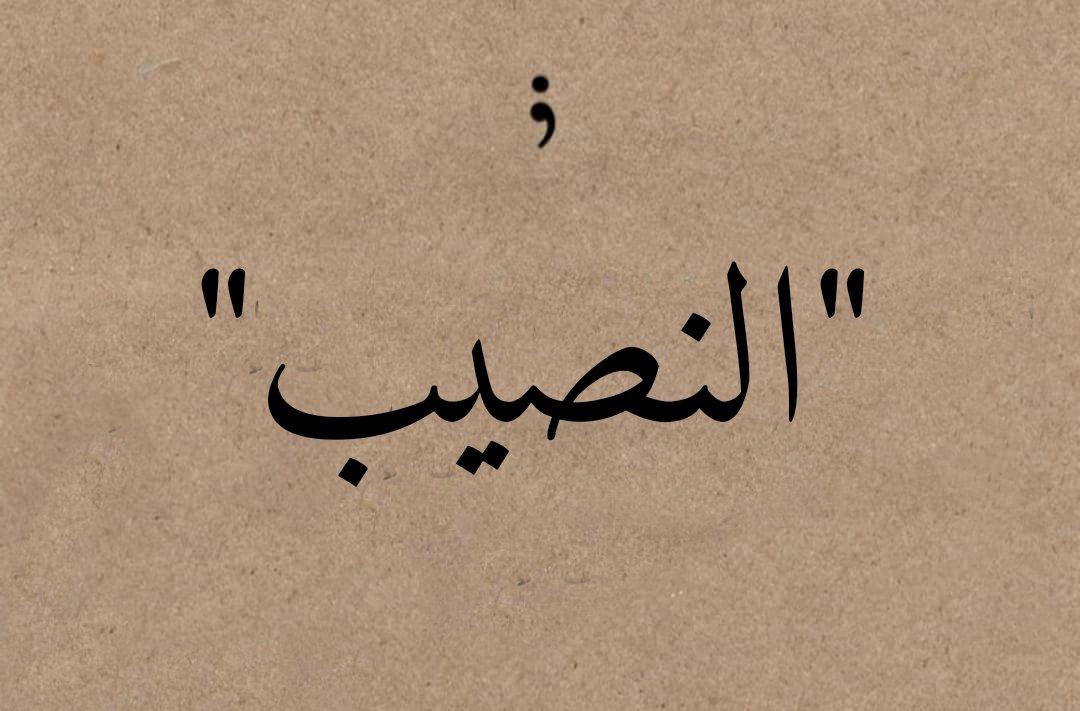 ;
"النصيب"